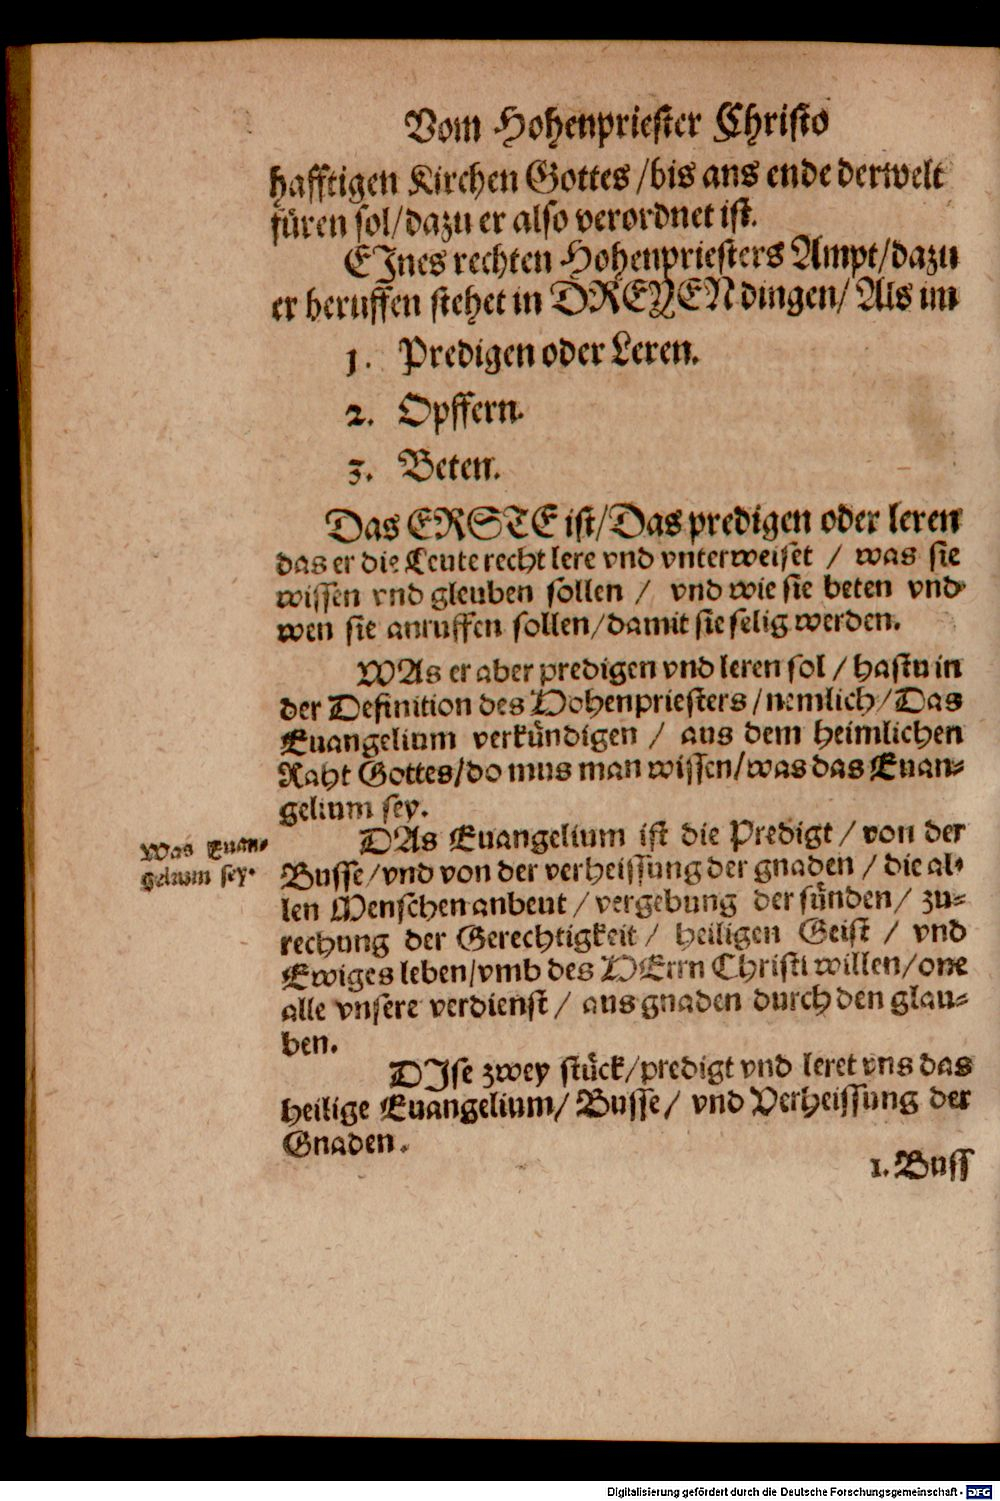 Vom Hohenpriester Christo
hafftigen Kirchen Gottes /bis ans ende derwelt
füren sol/dazu er also verordnet ist.
EJnes rechten Hohenpriesters Ampt/dazu
er beruffen stehet in DREYEN dingen/ Als im
1. Predigen oder Leren.
2. Opffern.
3. Beten.
Das ERSTE ist/Das predigen oder leren
das er die Leute recht lere vnd vnterweiset / was sie
wissen vnd gleuben sollen / vnd wie sie beten vnd
wen sie anruffen sollen/damit sie selig werden.
WAs er aber predigen vnd leren sol / hastu in
der Definition des Hohenpriesters /nemlich/Das
Euangelium verkündigen / aus dem heimlichen
Raht Gottes/do mus man wissen/was das Euan-
gelium sey.
Was Euan-
gelium sey.
DAs Euangelium ist die Predigt / von der
Busse/vnd von der verheissung der gnaden / die al-
len Menschen anbeut / vergebung der sünden/ zu-
rechung der Gerechtigkeit / heiligen Geist / vnd
Ewiges leben/vmb des HErrn Christi willen/one
alle vnsere verdienst / aus gnaden durch den glau-
ben.
DJse zwey stück/predigt vnd leret vns das
heilige Euangelium/ Busse/ vnd Verheissung der
Gnaden.
1. Buss
Digitalisierung gefördert durch die Deutsche Forschungsgemeinschaft - DFG